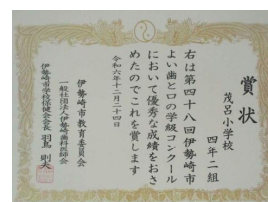 賞状
四年二組
茂呂小学校
右は第四十八回伊勢崎市
よい歯と口の学級コンクール
において優秀な成績をおさ
めたのでこれを賞します
令和六年十二月二十四日
伊勢崎市教育委員会
一般社団法人伊勢崎歯科医師会
伊勢崎市学校保健会会長 羽鳥